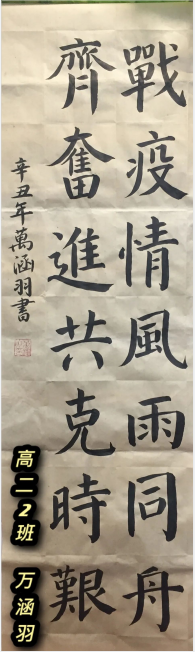 戰疫情風雨同舟
齊奮進共克時艱
辛丑年萬涵羽書
高二2班 万涵羽